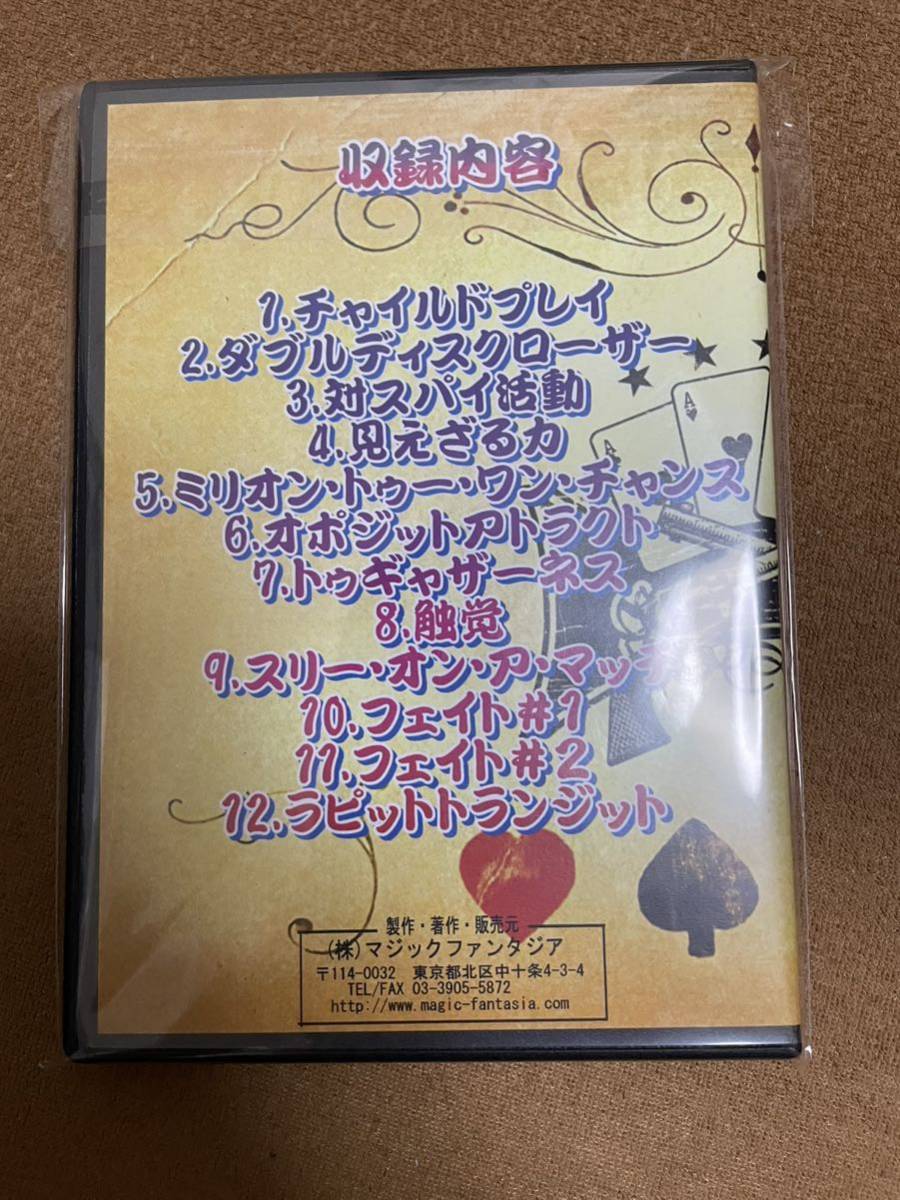 収録内容
1.チャイルドプレイ
2.ダブルディスクローザー
3.対スパイ活動
4.見えざる力
5.ミリオン・トゥー・ワン・チャンス
6.オポジットアトラクト
7.トゥギャザーネス
8.触覚
9.スリー・オン・ア・マッチ
10.フェイト#1
11.フェイト#2
12.ラピットトランジット
A
A
製作・著作・販売元
(株)マジックファンタジア
〒114-0032 東京都北区中十条4-3-4
TEL/FAX 03-3905-5872
http://www.magic-fantasia.com